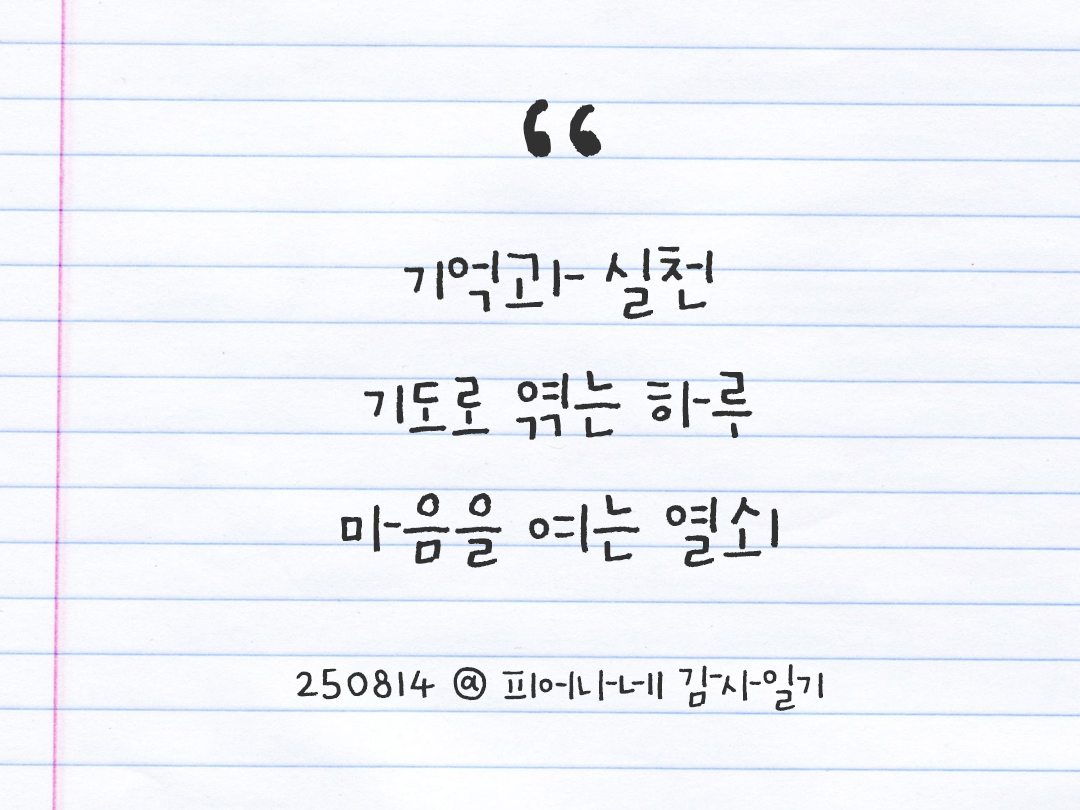 “
기억과 실천
기도로 엮는 하루
마음을 여는 열쇠
250814 @ 피어나네 감사일기